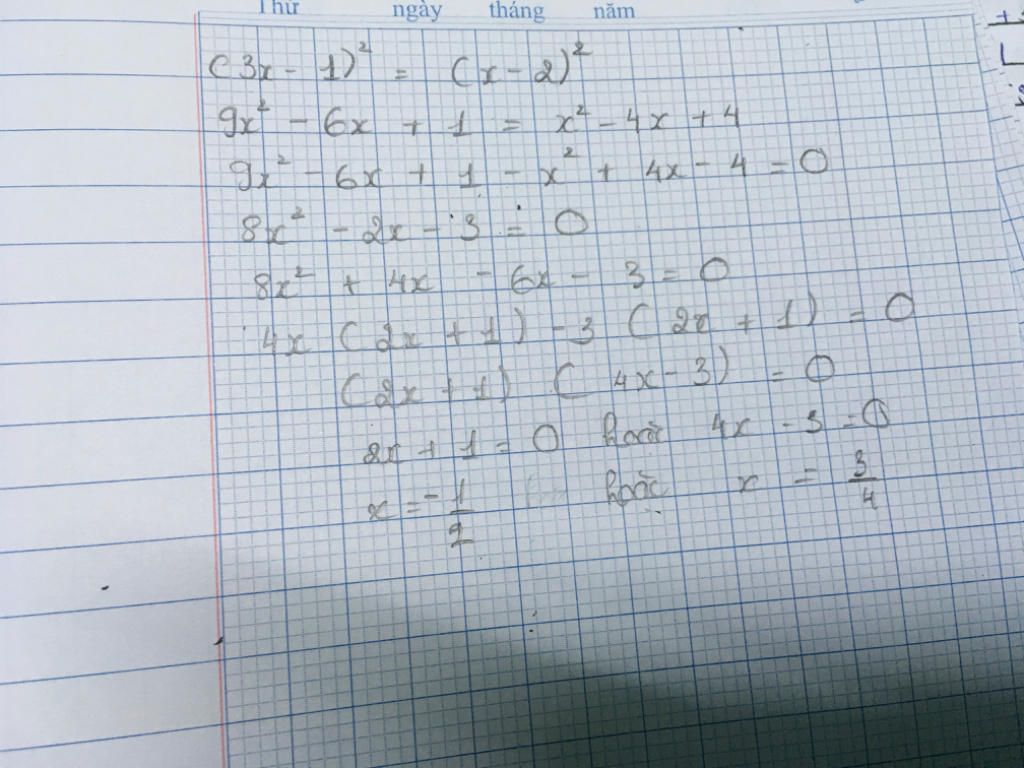 Thứ ngày tháng năm
(3x - 1)² = (x - 2)²
9x² - 6x + 1 = x² - 4x + 4
9x² - 6x + 1 - x² + 4x - 4 = 0
8x² - 2x - 3 = 0
8x² + 4x - 6x - 3 = 0
4x (2x + 1) - 3 (2x + 1) = 0
(2x + 1) (4x - 3) = 0
2x + 1 = 0 hoặc 4x - 3 = 0
x = -1/2 hoặc x = 3/4